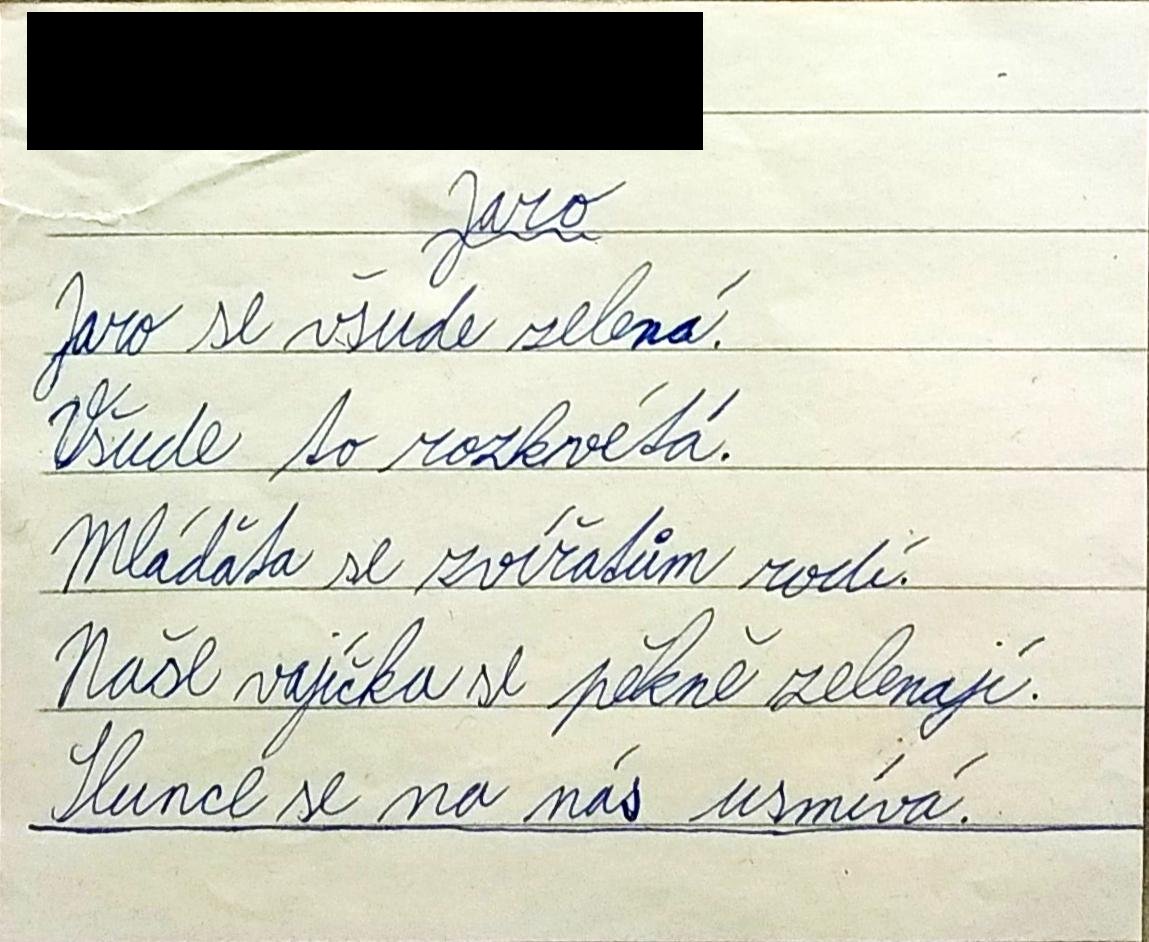 Jaro
Jaro se všude zelená.
Všude to rozkvétá.
Mláďáta se zvířatům rodí.
Naše vajíčka se pěkně zelenají.
Slunce se na nás usmívá.